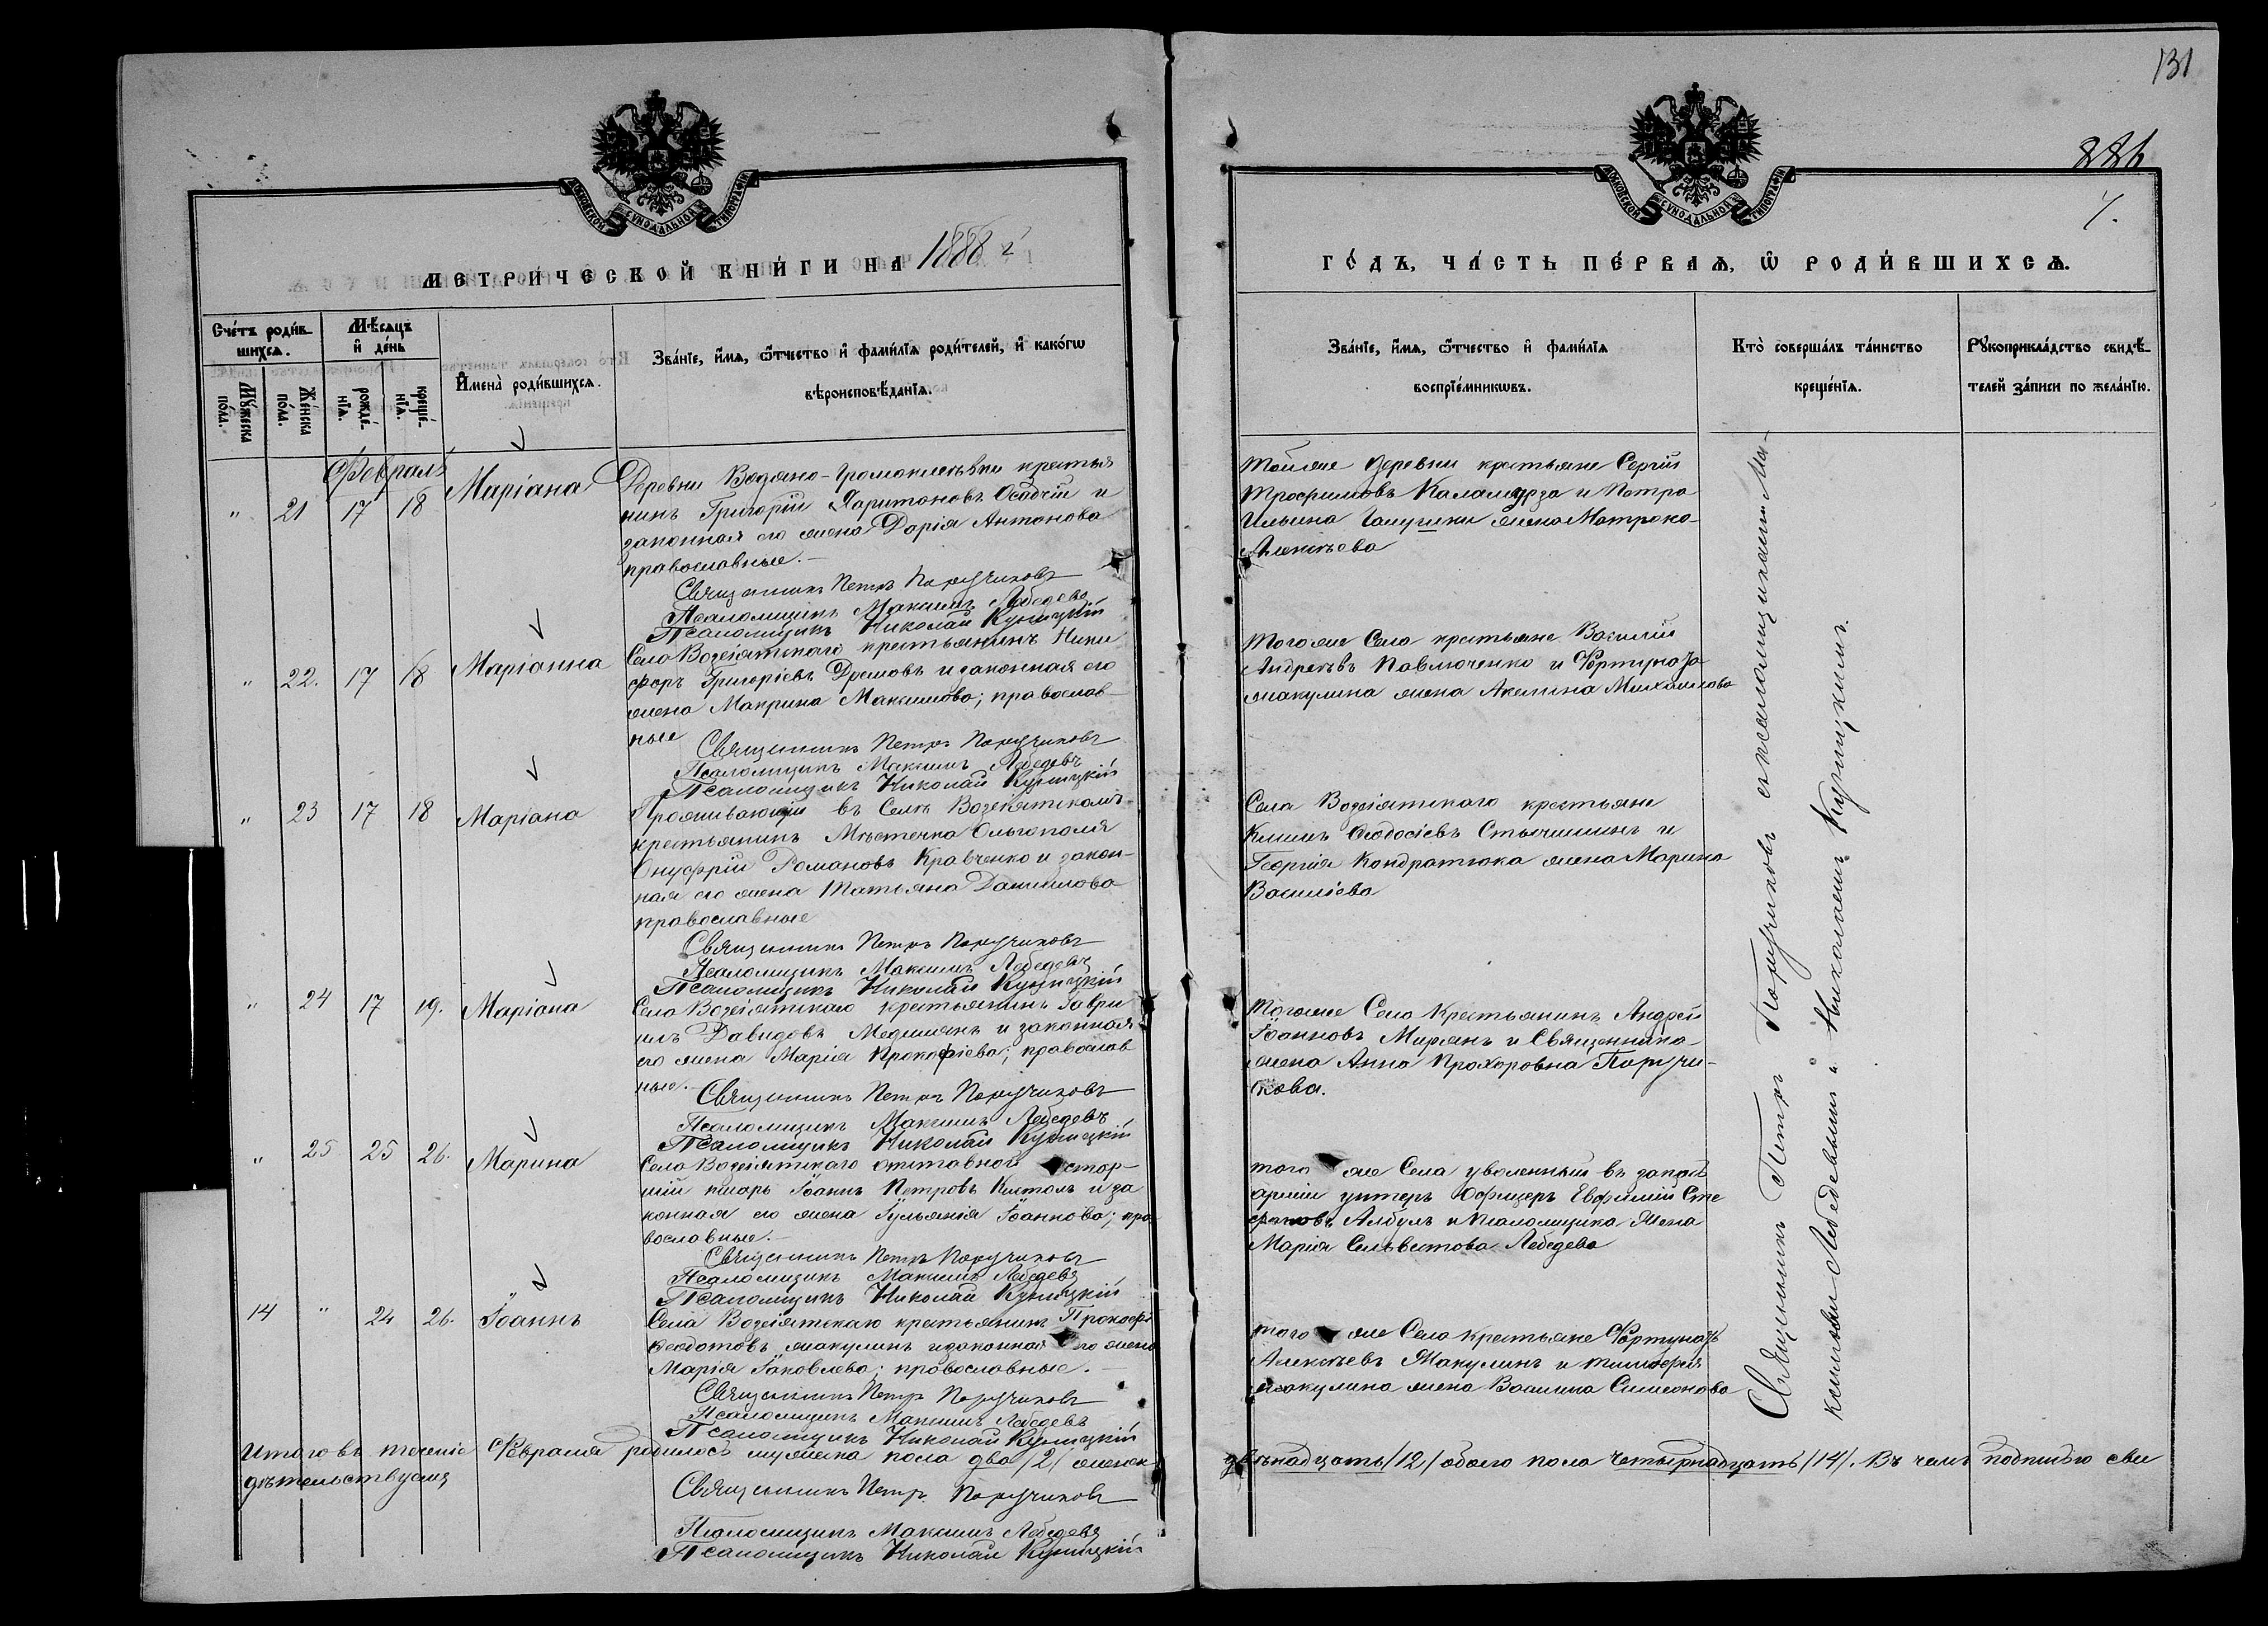 131
886
7.
МОСКОВСКОЙ СѴНОДАЛЬНОЙ ТИПОГРАФІИ
МОСКОВСКОЙ СѴНОДАЛЬНОЙ ТИПОГРАФІИ
МЕТРИ́ЧЕСКОЙ КНИ́ГИ НА 1888 г.
ГО́ДЪ, ЧА́СТЬ ПЕ́РВАѦ, Ѡ РОДИ́ВШИХСѦ.
Сче́тъ роди́в-
шихсѧ.
Мѣ́сѧцъ
и҆ де́нь
И҆мена̀ роди́вшихсѧ.
Зва́нїе, и҆́мѧ, ѻ҆́тчество и҆ фами́лїѧ роди́телей, и҆ како́гѡ
вѣроисповѣ́данїѧ.
Мꙋ́жеска
по́ла.
Же́нска
по́ла.
рожде́-
нїѧ.
креще́-
нїѧ.
Зва́нїе, и҆́мѧ, ѻ҆́тчество и҆ фами́лїѧ
воспрїе́мникѡвъ.
Кто̀ соверша́лъ та́инство
креще́нїѧ.
Рꙋкоприкла́дство свидѣ́-
телей за́писи по жела́нїю.
Февраль
" 21 17 18 Маріана
Деревни Водяно-Громоклеевки крестья
нинъ Григорій Харитоновъ Осадчій и
законная его жена Дарія Антонова
православные.
Священникъ Петръ Поручиковъ
Псаломщикъ Максимъ Лебедевъ
Псаломщикъ Николай Куницкій
Тойже деревни крестьяне Сергій
Трофимовъ Каламурза и Петра
Ильина жена Матрона
Алексѣева
" 22. 17 18 Маріанна
Села Возсіятскаго крестьянинъ Ники
форъ Григоріевъ и законная его
жена Макрина Максимова; православ
ные
Священникъ Петръ Поручиковъ
Псаломщикъ Максимъ Лебедевъ
Псаломщикъ Николай Куницкій
Тогоже Села крестьяне Василій
Андреевъ Павлюченко и Фортуната
Жакулина жена Акелина Михаилова
" 23 17 18 Маріана
Проживающій въ Селѣ Возсіятскомъ
крестьянинъ Мѣстечка Ольгополя
Онуфрій Романовъ Кравченко и закон-
ная его жена Татьяна Даниилова
православные
Священникъ Петръ Поручиковъ
Псаломщикъ Максимъ Лебедевъ
Псаломщикъ Николай Куницкій
Села Возсіятскаго крестьяне
Климъ Феодосіевъ и
Георгія Кондратюка жена Марина
Василіева
" 24 17 19. Маріана
Села Возсіятскаго крестьянинъ Гаври
илъ Давидовъ и законная
его жена Марія Прокофіева; православ
ные.
Священникъ Петръ Поручиковъ
Псаломщикъ Максимъ Лебедевъ
Псаломщикъ Николай Куницкій
Тогоже Села Крестьянинъ Андрей
Іоанновъ Мирянъ и Священника
жена Анна Прохоровна Поручи-
кова.
" 25 25 26. Марина
Села Возсіятскаго отставной стар-
шій писарь Іоаннъ Петровъ и за
конная его жена Іульянія Іоаннова; пра
вославные.
Священникъ Петръ Поручиковъ
Псаломщикъ Максимъ Лебедевъ
Псаломщикъ Николай Куницкій
того же Села уволенный въ запасъ
арміи унтеръ Офицеръ Евфимій Сте
фановъ Албулъ и Псаломщика Жена
Марія Сельвестова Лебедева
14 " 24 26. Іоаннъ
Села Возсіятскаго крестьянинъ Прокофій
Феодотовъ Жакулинъ и законная его жена
Марія Іаковлева; православные.
Священникъ Петръ Поручиковъ
Псаломщикъ Максимъ Лебедевъ
Псаломщикъ Николай Куницкій
того же Села Крестьяне Фортунатъ
Алексѣевъ Жакулинъ и Тимофея
Жакулина жена Василиса Симеонова
Священникъ Петръ Поручиковъ съ псаломщиками Ма-
ксимомъ Лебедевымъ и Николаемъ Куницкимъ.
Итого въ теченіе Февраля родилось мужеска пола два /2/ женска
двѣнадцать /12/ обоего пола четырнадцать /14/. Въ чемъ подписью сви
дѣтельствуемъ
Священникъ Петръ Поручиковъ
Псаломщикъ Максимъ Лебедевъ
Псаломщикъ Николай Куницкій